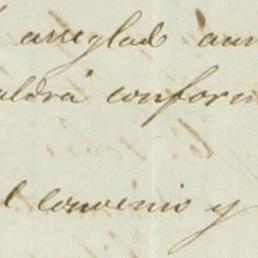 arreglad aun
aldrá conform
l convenio y